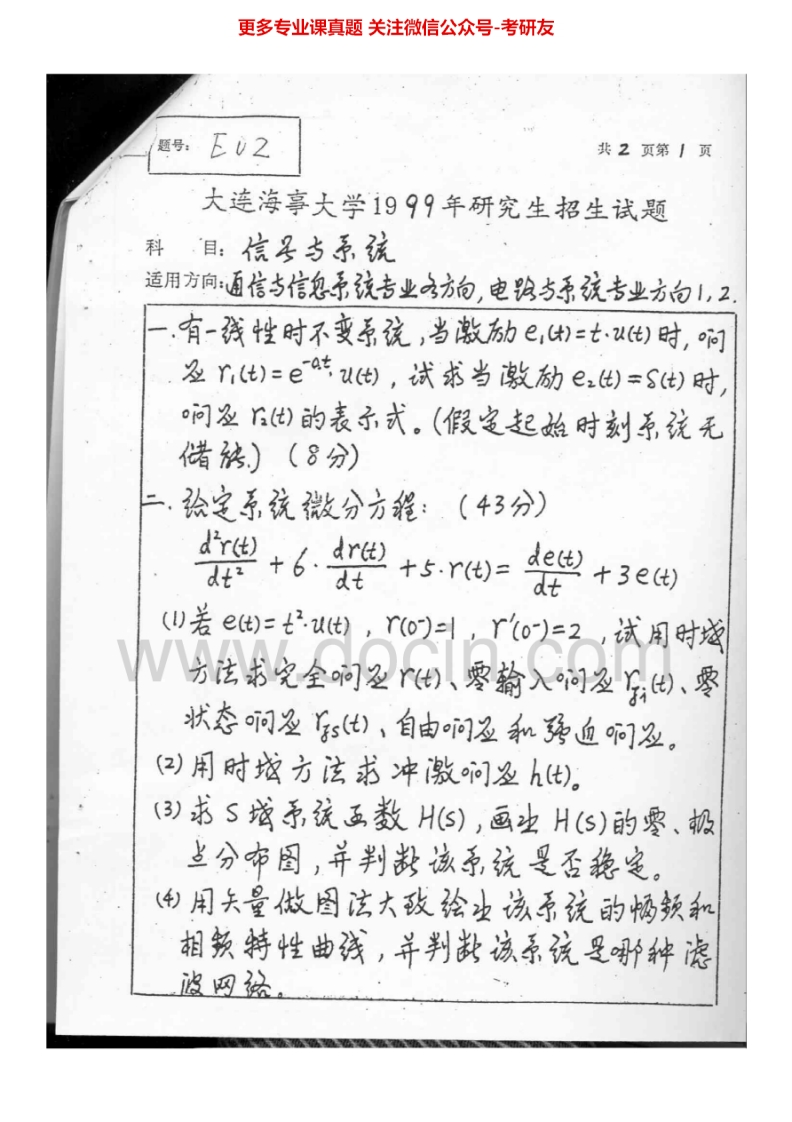 更多专业课真题 关注微信公众号-考研友
题号: E02
共 2 页第 1 页
大连海事大学1999年研究生招生试题
科 目: 信号与系统
适用方向:通信与信息系统专业各方向,电路与系统专业方向1,2.
一.有一线性时不变系统,当激励e₁(t)=t·u(t)时,响
应r₁(t)=e^{-at}·u(t),试求当激励e₂(t)=δ(t)时,
响应r₂(t)的表示式。(假定起始时刻系统无
储能.)(8分)
二.给定系统微分方程:(43分)
d²r(t)/dt² + 6·dr(t)/dt + 5·r(t) = de(t)/dt + 3e(t)
(1)若e(t)=t²·u(t), r(0⁻)=1, r′(0⁻)=2,试用时域
方法求完全响应r(t)、零输入响应r_{zi}(t)、零
状态响应r_{zs}(t)、自由响应和强迫响应。
(2)用时域方法求冲激响应h(t)。
(3)求S域系统函数H(S),画出H(S)的零、极
点分布图,并判断该系统是否稳定。
(4)用矢量做图法大致绘出该系统的幅频和
相频特性曲线,并判断该系统是哪种滤
波网络。
www.docin.com